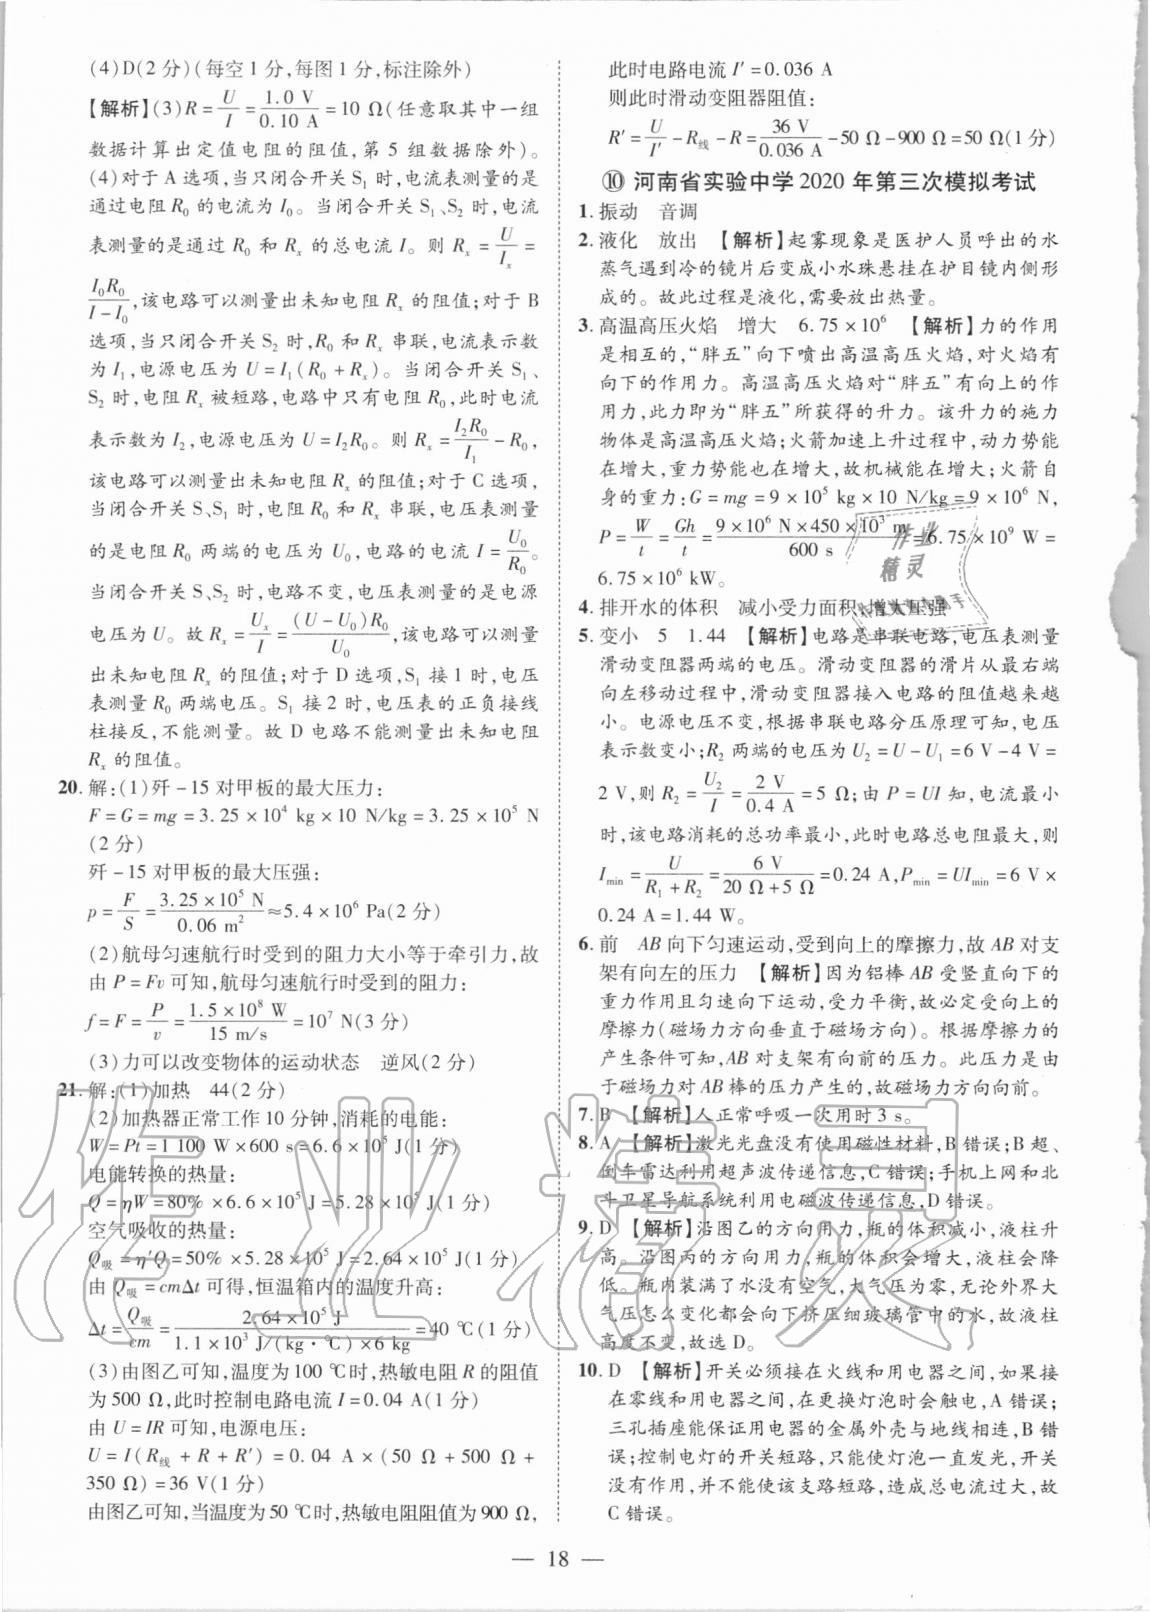 (4)D(2 分)(每空 1 分,每图 1 分,标注除外)
【解析】(3)R = U/I = 1.0 V/0.10 A = 10 Ω(任意取其中一组
数据计算出定值电阻的阻值,第 5 组数据除外)。
(4)对于 A 选项,当只闭合开关 S₁ 时,电流表测量的是
通过电阻 R₀ 的电流为 I₀。当闭合开关 S₁、S₂ 时,电流
表测量的是通过 R₀ 和 Rₓ 的总电流 I。则 Rₓ = U/Iₓ =
I₀R₀/(I − I₀),该电路可以测量出未知电阻 Rₓ 的阻值;对于 B
选项,当只闭合开关 S₂ 时,R₀ 和 Rₓ 串联,电流表示数
为 I₁,电源电压为 U = I₁(R₀ + Rₓ)。当闭合开关 S₁、
S₂ 时,电阻 Rₓ 被短路,电路中只有电阻 R₀,此时电流
表示数为 I₂,电源电压为 U = I₂R₀。则 Rₓ = I₂R₀/I₁ − R₀,
该电路可以测量出未知电阻 Rₓ 的阻值;对于 C 选项,
当闭合开关 S、S₁ 时,电阻 R₀ 和 Rₓ 串联,电压表测量
的是电阻 R₀ 两端的电压为 U₀,电路的电流 I = U₀/R₀。
当闭合开关 S、S₂ 时,电路不变,电压表测量的是电源
电压为 U。故 Rₓ = Uₓ/I = (U − U₀)R₀/U₀,该电路可以测量
出未知电阻 Rₓ 的阻值;对于 D 选项,S₁ 接 1 时,电压
表测量 R₀ 两端电压。S₁ 接 2 时,电压表的正负接线
柱接反,不能测量。故 D 电路不能测量出未知电阻
Rₓ 的阻值。
20. 解:(1)歼 − 15 对甲板的最大压力:
F = G = mg = 3.25 × 10⁴ kg × 10 N/kg = 3.25 × 10⁵ N
(2 分)
歼 − 15 对甲板的最大压强:
p = F/S = 3.25 × 10⁵ N/0.06 m² ≈ 5.4 × 10⁶ Pa(2 分)
(2)航母匀速航行时受到的阻力大小等于牵引力,故
由 P = Fv 可知,航母匀速航行时受到的阻力:
f = F = P/v = 1.5 × 10⁸ W/15 m/s = 10⁷ N(3 分)
(3)力可以改变物体的运动状态 逆风(2 分)
21. 解:(1)加热 44(2 分)
(2)加热器正常工作 10 分钟,消耗的电能:
W = Pt = 1 100 W × 600 s = 6.6 × 10⁵ J(1 分)
电能转换的热量:
Q = ηW = 80% × 6.6 × 10⁵ J = 5.28 × 10⁵ J(1 分)
空气吸收的热量:
Q吸 = η′Q = 50% × 5.28 × 10⁵ J = 2.64 × 10⁵ J(1 分)
由 Q吸 = cmΔt 可得,恒温箱内的温度升高:
Δt = Q吸/cm = 2.64 × 10⁵ J/1.1 × 10³ J/(kg · ℃) × 6 kg = 40 ℃(1 分)
(3)由图乙可知,温度为 100 ℃时,热敏电阻 R 的阻值
为 500 Ω,此时控制电路电流 I = 0.04 A(1 分)
由 U = IR 可知,电源电压:
U = I(R线 + R + R′) = 0.04 A × (50 Ω + 500 Ω +
350 Ω) = 36 V(1 分)
由图乙可知,当温度为 50 ℃时,热敏电阻阻值为 900 Ω,
此时电路电流 I′ = 0.036 A
则此时滑动变阻器阻值:
R′ = U/I′ − R线 − R = 36 V/0.036 A − 50 Ω − 900 Ω = 50 Ω(1 分)
⑩ 河南省实验中学 2020 年第三次模拟考试
1. 振动 音调
2. 液化 放出 【解析】起雾现象是医护人员呼出的水
蒸气遇到冷的镜片后变成小水珠悬挂在护目镜内侧形
成的。故此过程是液化,需要放出热量。
3. 高温高压火焰 增大 6.75 × 10⁶ 【解析】力的作用
是相互的,“胖五”向下喷出高温高压火焰,对火焰有
向下的作用力。高温高压火焰对“胖五”有向上的作
用力,此力即为“胖五”所获得的升力。该升力的施力
物体是高温高压火焰;火箭加速上升过程中,动力势能
在增大,重力势能也在增大,故机械能在增大;火箭自
身的重力:G = mg = 9 × 10⁵ kg × 10 N/kg = 9 × 10⁶ N,
P = W/t = Gh/t = 9 × 10⁶ N × 450 × 10³ m/600 s = 6.75 × 10⁹ W =
6.75 × 10⁶ kW。
4. 排开水的体积 减小受力面积,增大压强
5. 变小 5 1.44 【解析】电路是串联电路,电压表测量
滑动变阻器两端的电压。滑动变阻器的滑片从最右端
向左移动过程中,滑动变阻器接入电路的阻值越来越
小。电源电压不变,根据串联电路分压原理可知,电压
表示数变小;R₂ 两端的电压为 U₂ = U − U₁ = 6 V − 4 V =
2 V,则 R₂ = U₂/I = 2 V/0.4 A = 5 Ω;由 P = UI 知,电流最小
时,该电路消耗的总功率最小,此时电路总电阻最大,则
Imin = U/(R₁ + R₂) = 6 V/(20 Ω + 5 Ω) = 0.24 A,Pmin = UImin = 6 V ×
0.24 A = 1.44 W。
6. 前 AB 向下匀速运动,受到向上的摩擦力,故 AB 对支
架有向左的压力 【解析】因为铝棒 AB 受竖直向下的
重力作用且匀速向下运动,受力平衡,故必定受向上的
摩擦力(磁场力方向垂直于磁场方向)。根据摩擦力的
产生条件可知,AB 对支架有向前的压力。此压力是由
于磁场力对 AB 棒的压力产生的,故磁场力方向向前。
7. B 【解析】人正常呼吸一次用时 3 s。
8. A 【解析】激光光盘没有使用磁性材料,B 错误;B 超、
倒车雷达利用超声波传递信息,C 错误;手机上网和北
斗卫星导航系统利用电磁波传递信息,D 错误。
9. D 【解析】沿图乙的方向用力,瓶的体积减小,液柱升
高。沿图丙的方向用力,瓶的体积会增大,液柱会降
低。瓶内装满了水没有空气,大气压为零,无论外界大
气压怎么变化都会向下挤压细玻璃管中的水,故液柱
高度不变,故选 D。
10. D 【解析】开关必须接在火线和用电器之间,如果接
在零线和用电器之间,在更换灯泡时会触电,A 错误;
三孔插座能保证用电器的金属外壳与地线相连,B 错
误;控制电灯的开关短路,只能使灯泡一直发光,开关
没有作用,并不能使该支路短路,造成总电流过大,故
C 错误。
— 18 —
作业精灵
作业
精灵